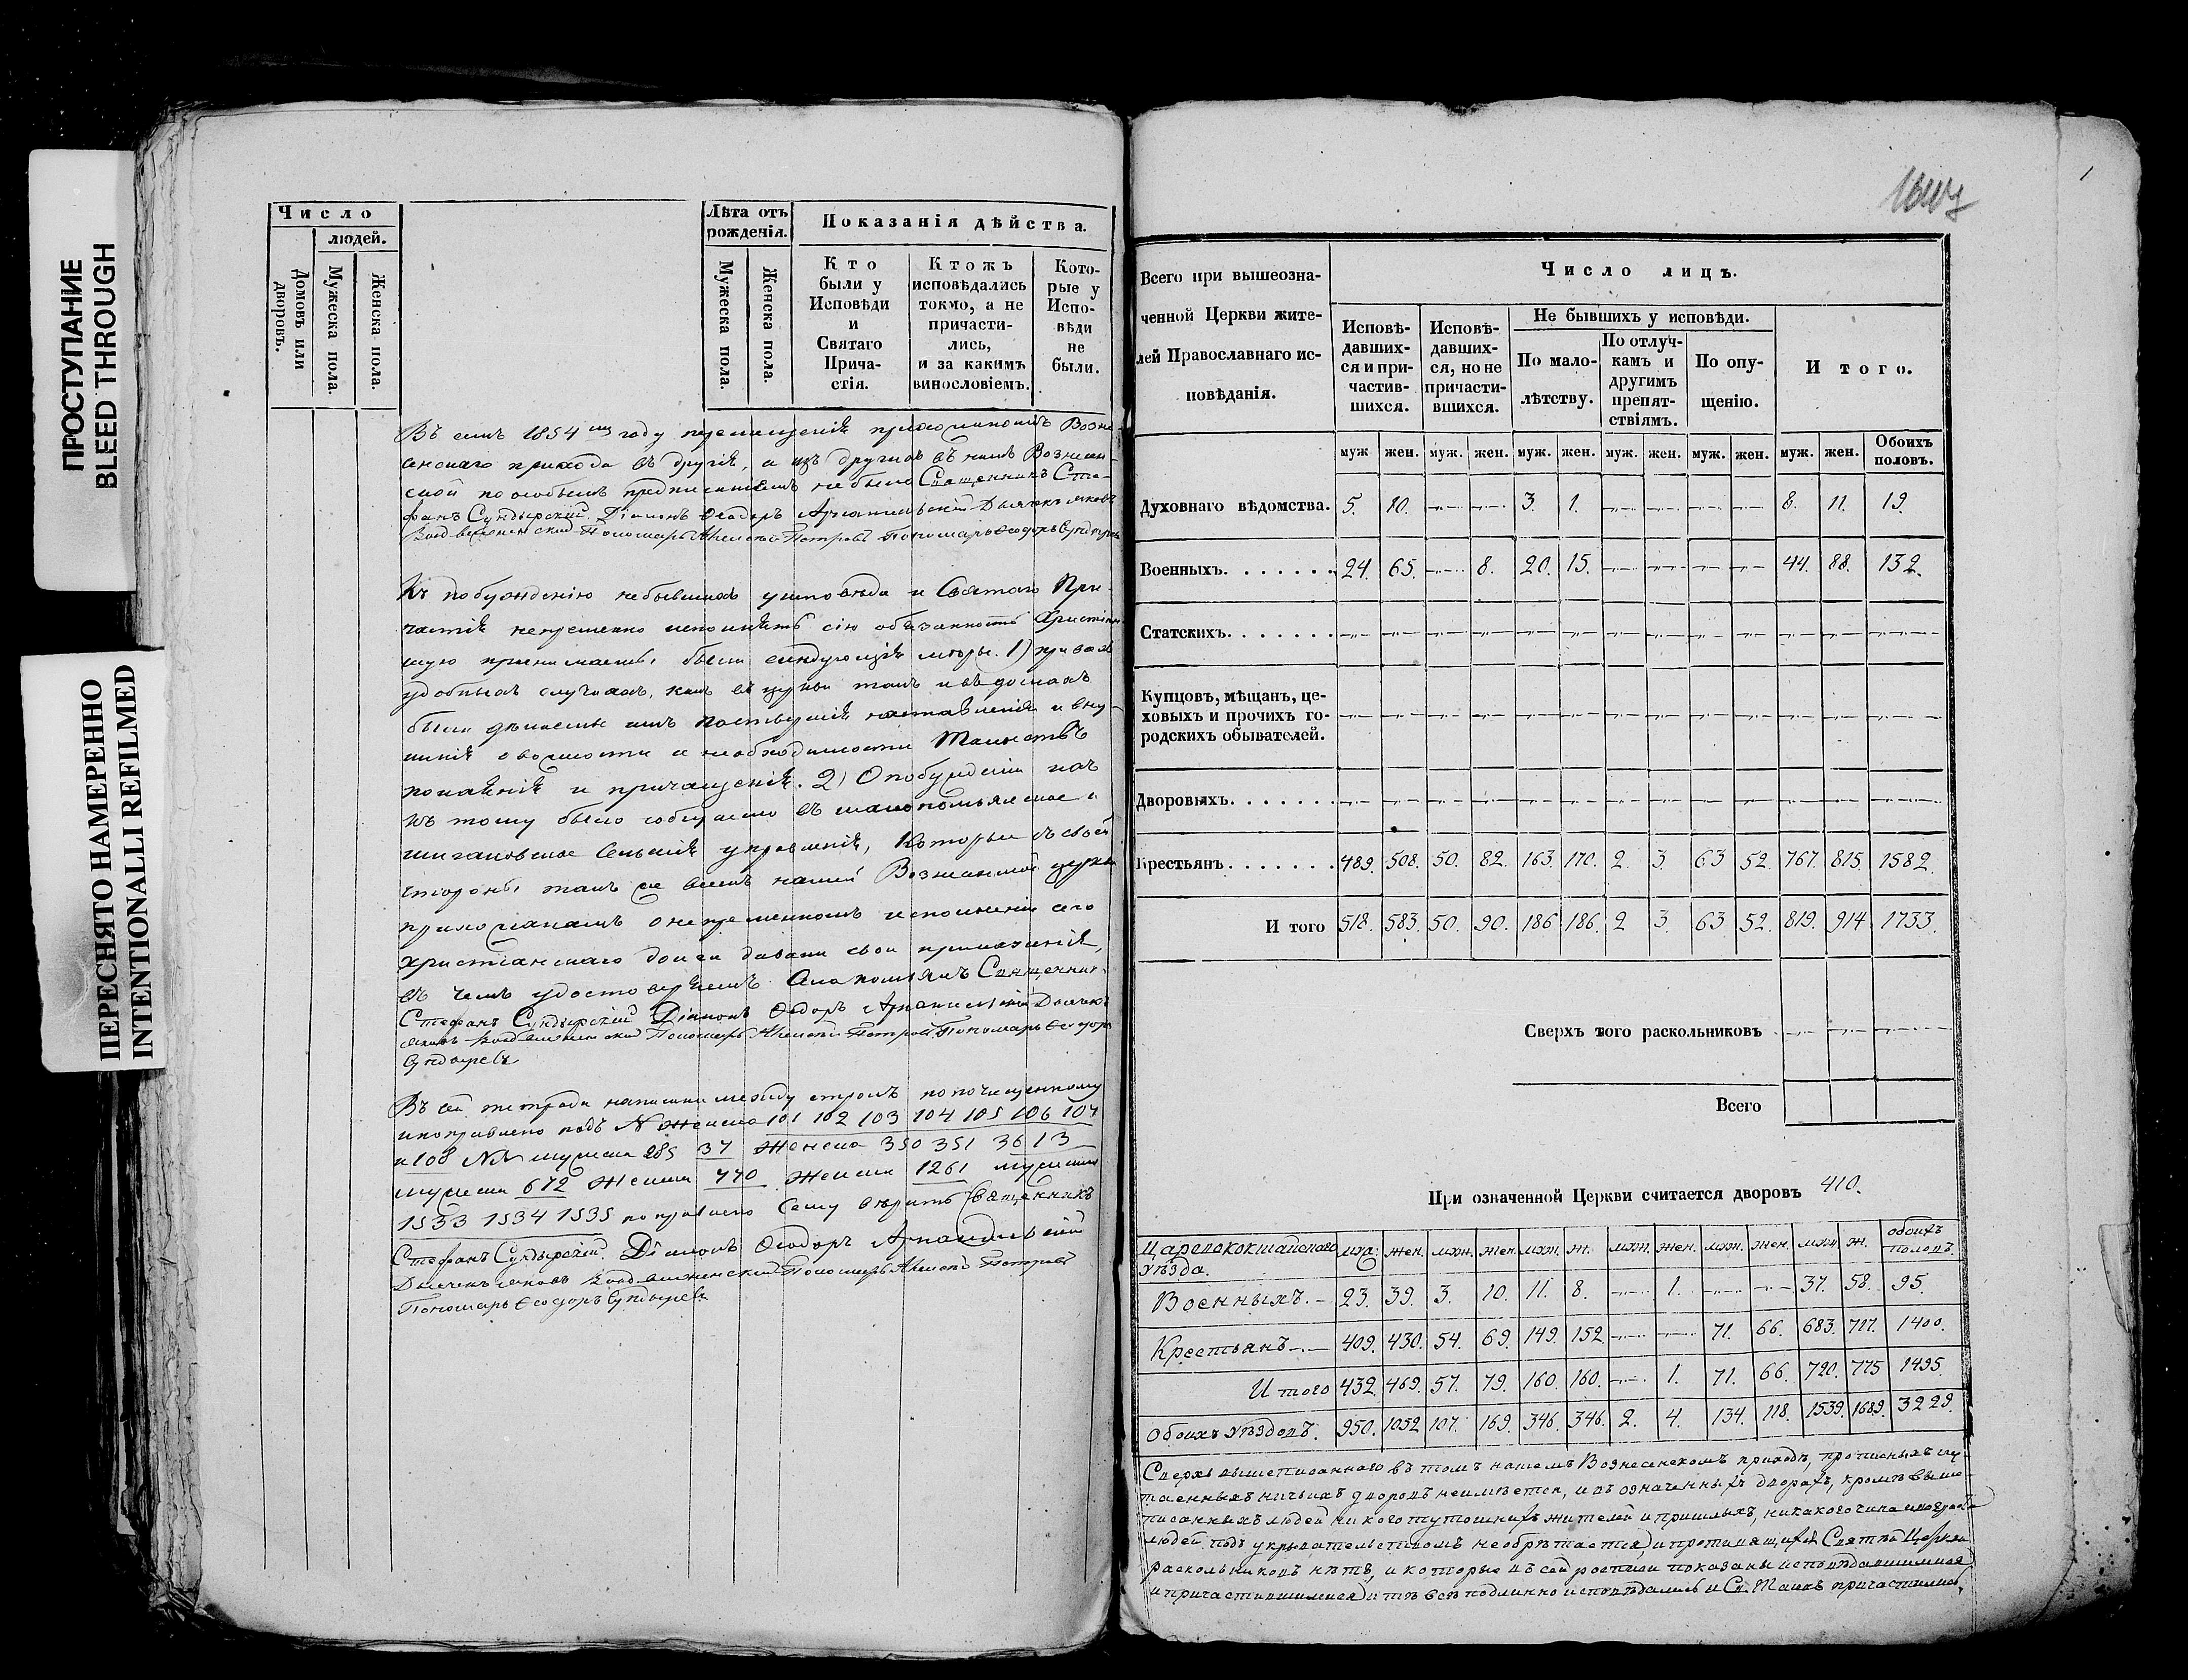 ПРОСТУПАНИЕ
BLEED THROUGH
ПЕРЕСНЯТО НАМЕРЕННО
INTENTIONALLI REFILMED
Число
людей.
Домовъ или дворовъ.
Мужеска пола.
Женска пола.
Лѣта отъ рожденія.
Мужеска пола.
Женска пола.
Показанія дѣйства.
Кто были у Исповѣди и Святаго Прича- стія.
Ктожъ исповѣдались токмо, а не причасти- лись, и за какимъ винословіемъ.
Кото- рые у Испо- вѣди не были.
Въ семъ 1854 году перемѣщенія прихожанъ изъ Возне-
сенскаго прихода въ другія, а изъ другихъ въ нашъ Вознесен-
ской по особымъ предписаніямъ не было Священникъ Сте-
фанъ Сундырскій Діаконъ Ѳеодоръ Дьячекъ Іаковъ
Воздвиженскій Пономарь Алексѣй Петровъ Пономарь Ѳеодоръ Сундыревъ
Къ побужденію небывшихъ у исповѣди и Святаго При-
частія непременно исполнять сію обязанность Христіан-
скую принимаемы были слѣдующія мѣры. 1) при всѣхъ
удобныхъ случаяхъ, какъ въ церкви такъ и въ домахъ
были дѣлаемы имъ пастырскія наставленія и вну-
шенія о важности и необходимости Таинствъ
покаянія и причащенія. 2) О побужденіи ихъ
къ тому было сообщаемо въ
Сельскія управленія, Которыя съ своей
стороны такъ же всемъ нашей Вознесенской церкви
прихожанамъ о непременномъ исполненіи сего
христіанскаго долга давали свои приказанія,
въ чемъ удостовѣряемъ Священникъ
Стефанъ Сундырскій Діаконъ Ѳеодоръ Дьячекъ
Іаковъ Воздвиженскій Пономарь Алексѣй Петровъ Пономарь Ѳеодоръ
Сундыревъ
Въ сей тетради написано между строкъ по почищенному
и поправлено подъ № Женска 101 102 103 104 105 106 107
и 108 №№ мужска 285 37 Женска 350 351 36 13
мужска 672 Женска 770 Женска 1261 мужска
1533 1534 1535 поправлено Сему вѣрить Священникъ
Стефанъ Сундырскій Діаконъ Ѳеодоръ
Дьячекъ Іаковъ Воздвиженскій Пономарь Алексѣй Петровъ
Пономарь Ѳеодоръ Сундыревъ
Всего при вышеозна- ченной Церкви жите- лей Православнаго ис- повѣданія.
Число лицъ.
Исповѣ- давших- ся и при- частив- шихся.
Исповѣ- давших- ся, но не причасти- вшихся.
Не бывшихъ у исповѣди.
По мало- лѣтству.
По отлуч- камъ и другимъ препят- ствіямъ.
По опу- щенію.
Итого.
муж жен. муж. жен. муж. жен. муж. жен. муж. жен. муж. жен. Обоихъ половъ.
Духовнаго вѣдомства. 5. 10. 3. 1. 8. 11. 19.
Военныхъ. 24. 65. 8. 20. 15. 44. 88. 132.
Статскихъ.
Купцовъ, мѣщанъ, це-
ховыхъ и прочихъ го-
родскихъ обывателей.
Дворовыхъ.
Крестьянъ. 489. 508. 50. 82. 163. 170. 2. 3. 63 52. 767. 815. 1582.
И того 518. 583. 50. 90. 186 186. 2 3. 63 52. 819. 914 1733.
Сверхъ того раскольниковъ
Всего
При означенной Церкви считается дворовъ 410.
Царевококшайскаго Уѣзда. муж. жен. муж. жен. муж. ж. муж. жен. муж. жен. муж. ж. обоихъ половъ.
Военныхъ. 23. 39. 3. 10. 11. 8. 1. 37. 58. 95.
Крестьянъ 409. 430. 54. 69. 149. 152 71. 66. 683. 717. 1400.
Итого 432. 469. 57. 79. 160. 160. 1. 71. 66. 720. 775 1495.
Обоихъ Уѣздовъ. 950. 1052 107. 169. 346. 346. 2. 4. 134. 118. 1539. 1689. 3229.
Сверхъ вышеписаннаго въ томъ нашемъ Вознесенскомъ приходѣ, прописныхъ и у-
таенныхъ ничьихъ дворовъ неимѣется, и въ означенныхъ дворахъ, кромѣ выше
писанныхъ людей никого тутошнихъ жителей и пришлыхъ, никакого чина и возраста
людей подъ укрывательствомъ необрѣтается, и противящихся Святѣй Церкви
раскольниковъ нѣтъ, и которые въ сей росписи показаны исповѣдавшимися
и причастившимися и тѣ всѣ подлинно исповѣдались и Св. Таинъ причастились,